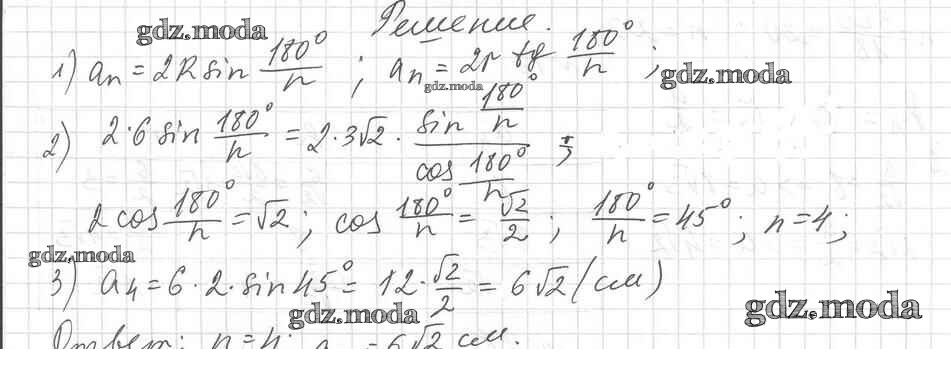 Решение.
gdz.moda
1) aₙ = 2R sin 180°/n ; aₙ = 2r tg 180°/n ;
gdz.moda
gdz.moda
2) 2·6 sin 180°/n = 2·3√2 · (sin 180°/n)/(cos 180°/n) ;
2 cos 180°/n = √2 ; cos 180°/n = √2/2 ; 180°/n = 45° ; n = 4 ;
gdz.moda
3) a₄ = 6·2·sin 45° = 12·√2/2 = 6√2 (см)
gdz.moda
gdz.moda
Ответ: n = 4. = 6√2 см.